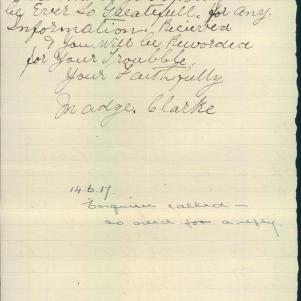 be Ever So Greatefull, for any
Information, Recieved
& you Will be Reworded
for Your Troubble,
Your Faithfully
Madge. Clarke
14.6.17.
Enquirer called —
no need for a reply.